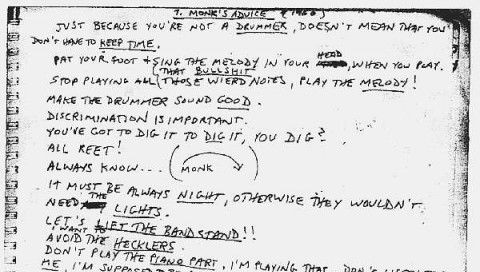 T. MONK'S ADVICE (1960)
JUST BECAUSE YOU'RE NOT A DRUMMER, DOESN'T MEAN THAT YOU
DON'T HAVE TO KEEP TIME.
PAT YOUR FOOT + SING THE MELODY IN YOUR HEAD, WHEN YOU PLAY.
STOP PLAYING ALL (THAT BULLSHIT) THOSE WIERD NOTES, PLAY THE MELODY!
MAKE THE DRUMMER SOUND GOOD.
DISCRIMINATION IS IMPORTANT.
YOU'VE GOT TO DIG IT TO DIG IT, YOU DIG?
ALL REET!
ALWAYS KNOW... (MONK)
IT MUST BE ALWAYS NIGHT, OTHERWISE THEY WOULDN'T
NEED THE LIGHTS.
LET'S LIFT THE BANDSTAND!!
I WANT TO AVOID THE HECKLERS.
DON'T PLAY THE PIANO PART, I'M PLAYING THAT.
ME, I'M SUPPOSED